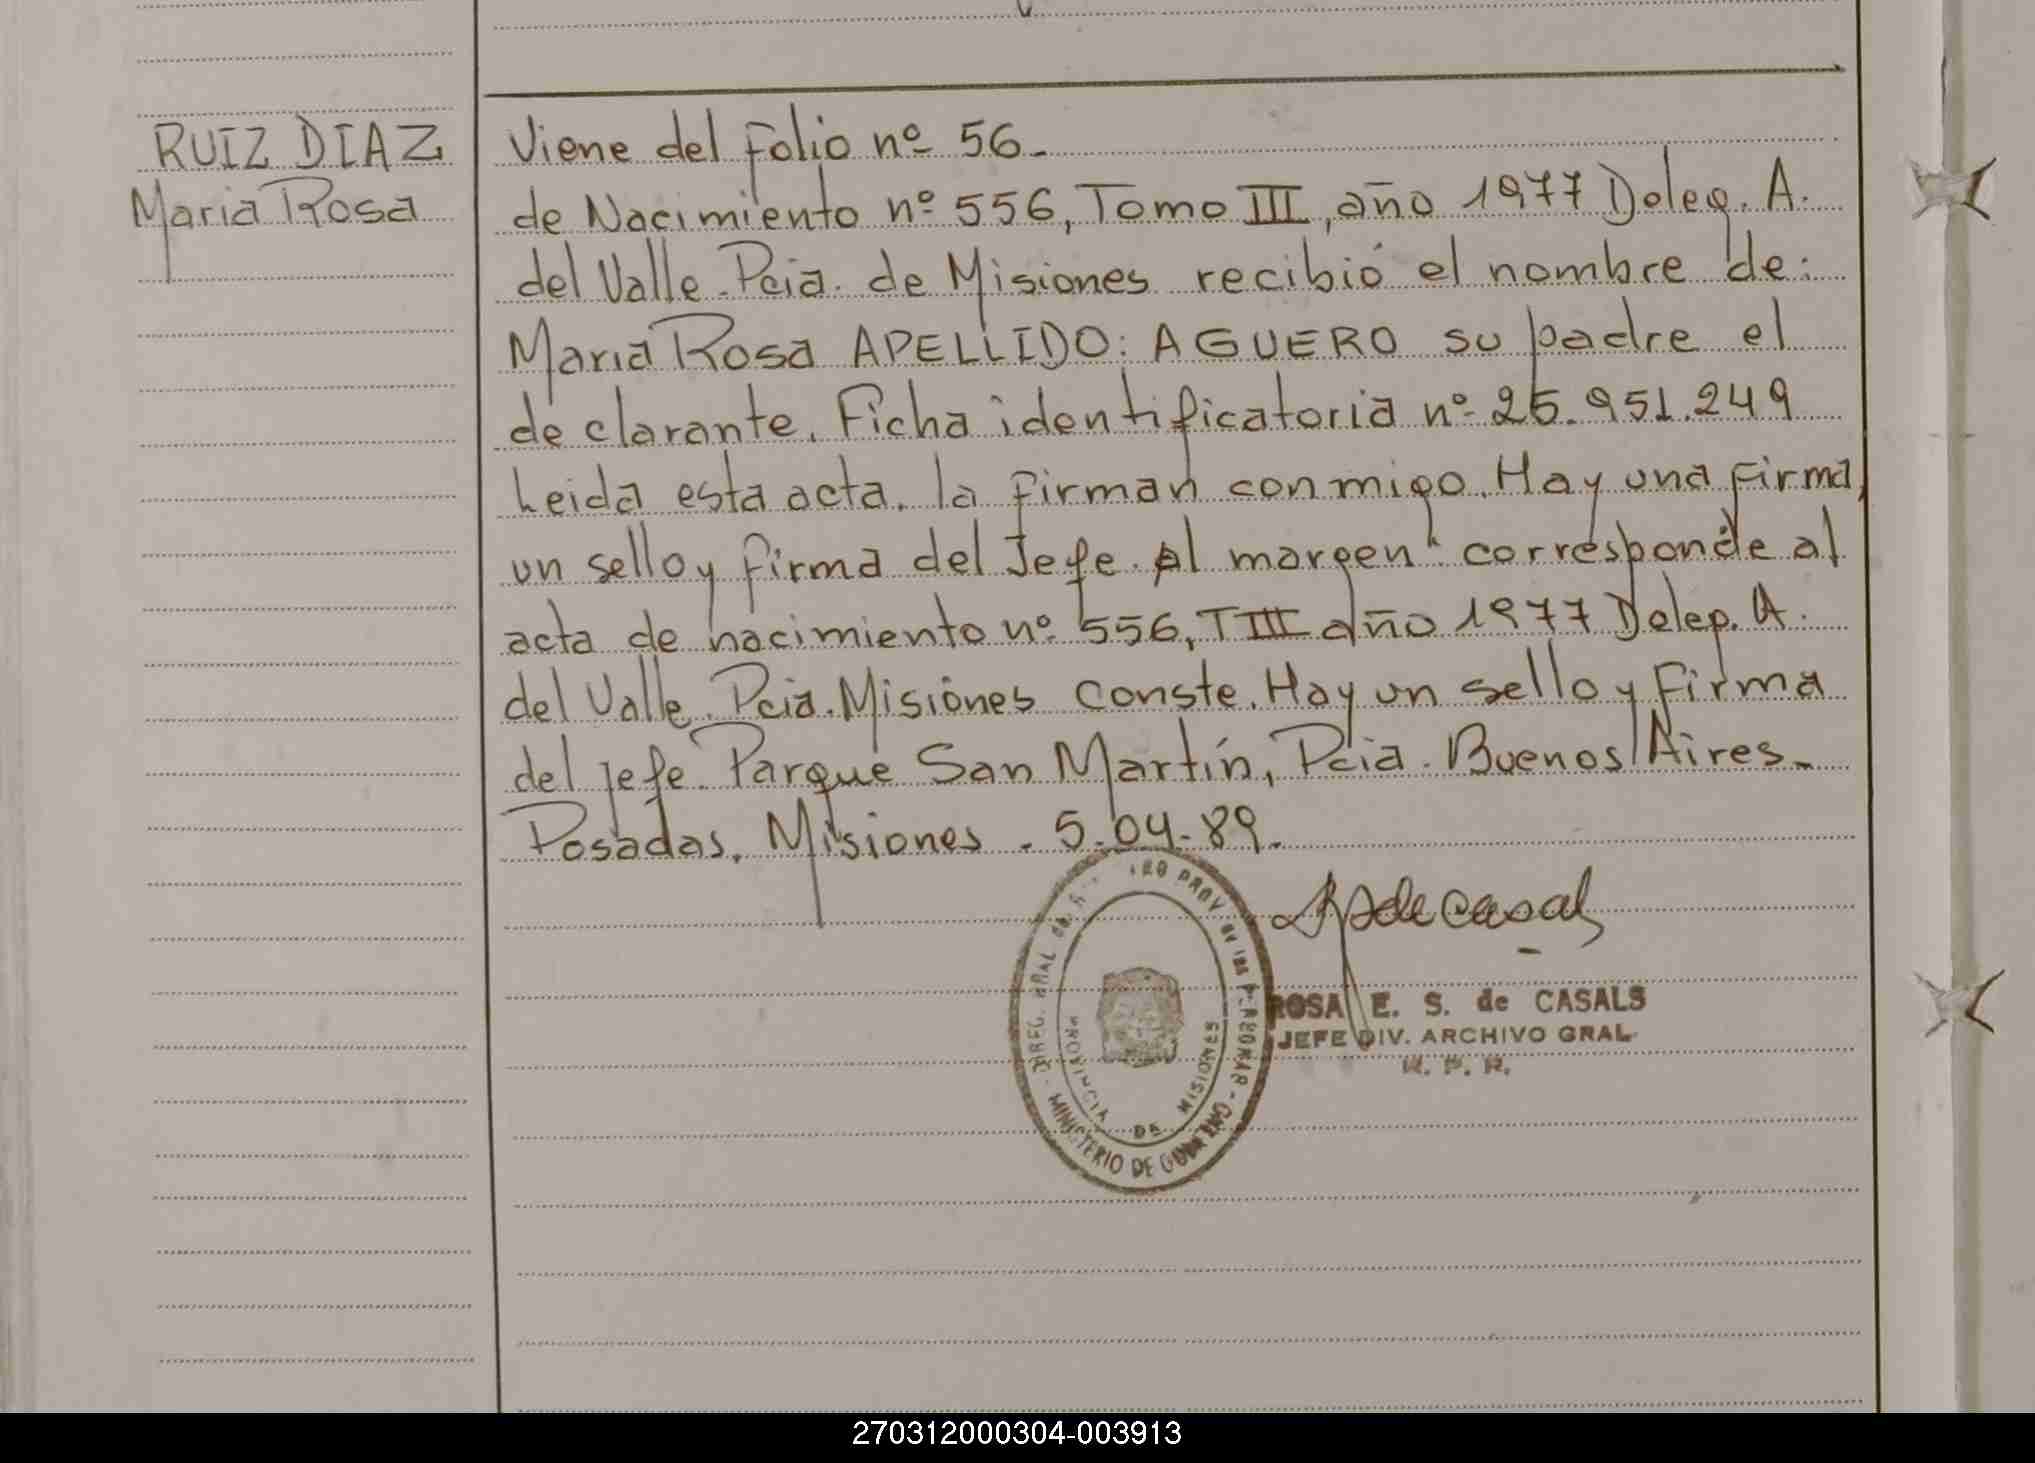 RUIZ DIAZ
Maria Rosa
Viene del Folio nº 56.-
de Nacimiento nº 556, Tomo III, año 1977 Deleg. A.
del Valle. Pcia. de Misiones recibió el nombre de:
Maria Rosa APELLIDO: AGUERO su padre el
declarante. Ficha identificatoria nº 25.951.249
Leida esta acta. la firman conmigo. Hay una firma,
un sello y firma del Jefe. Al margen: corresponde al
acta de nacimiento nº 556, T III año 1977 Deleg. A.
del Valle. Pcia. Misiones conste. Hay un sello y firma
del jefe. Parque San Martín, Pcia. Buenos Aires.-
Posadas, Misiones. 5.04.89.
ROSA E. S. de CASALS
JEFE DIV. ARCHIVO GRAL.
R. P. R.
PROV de las PERSONAS - MINISTERIO DE
PROVINCIA DE MISIONES
270312000304-003913